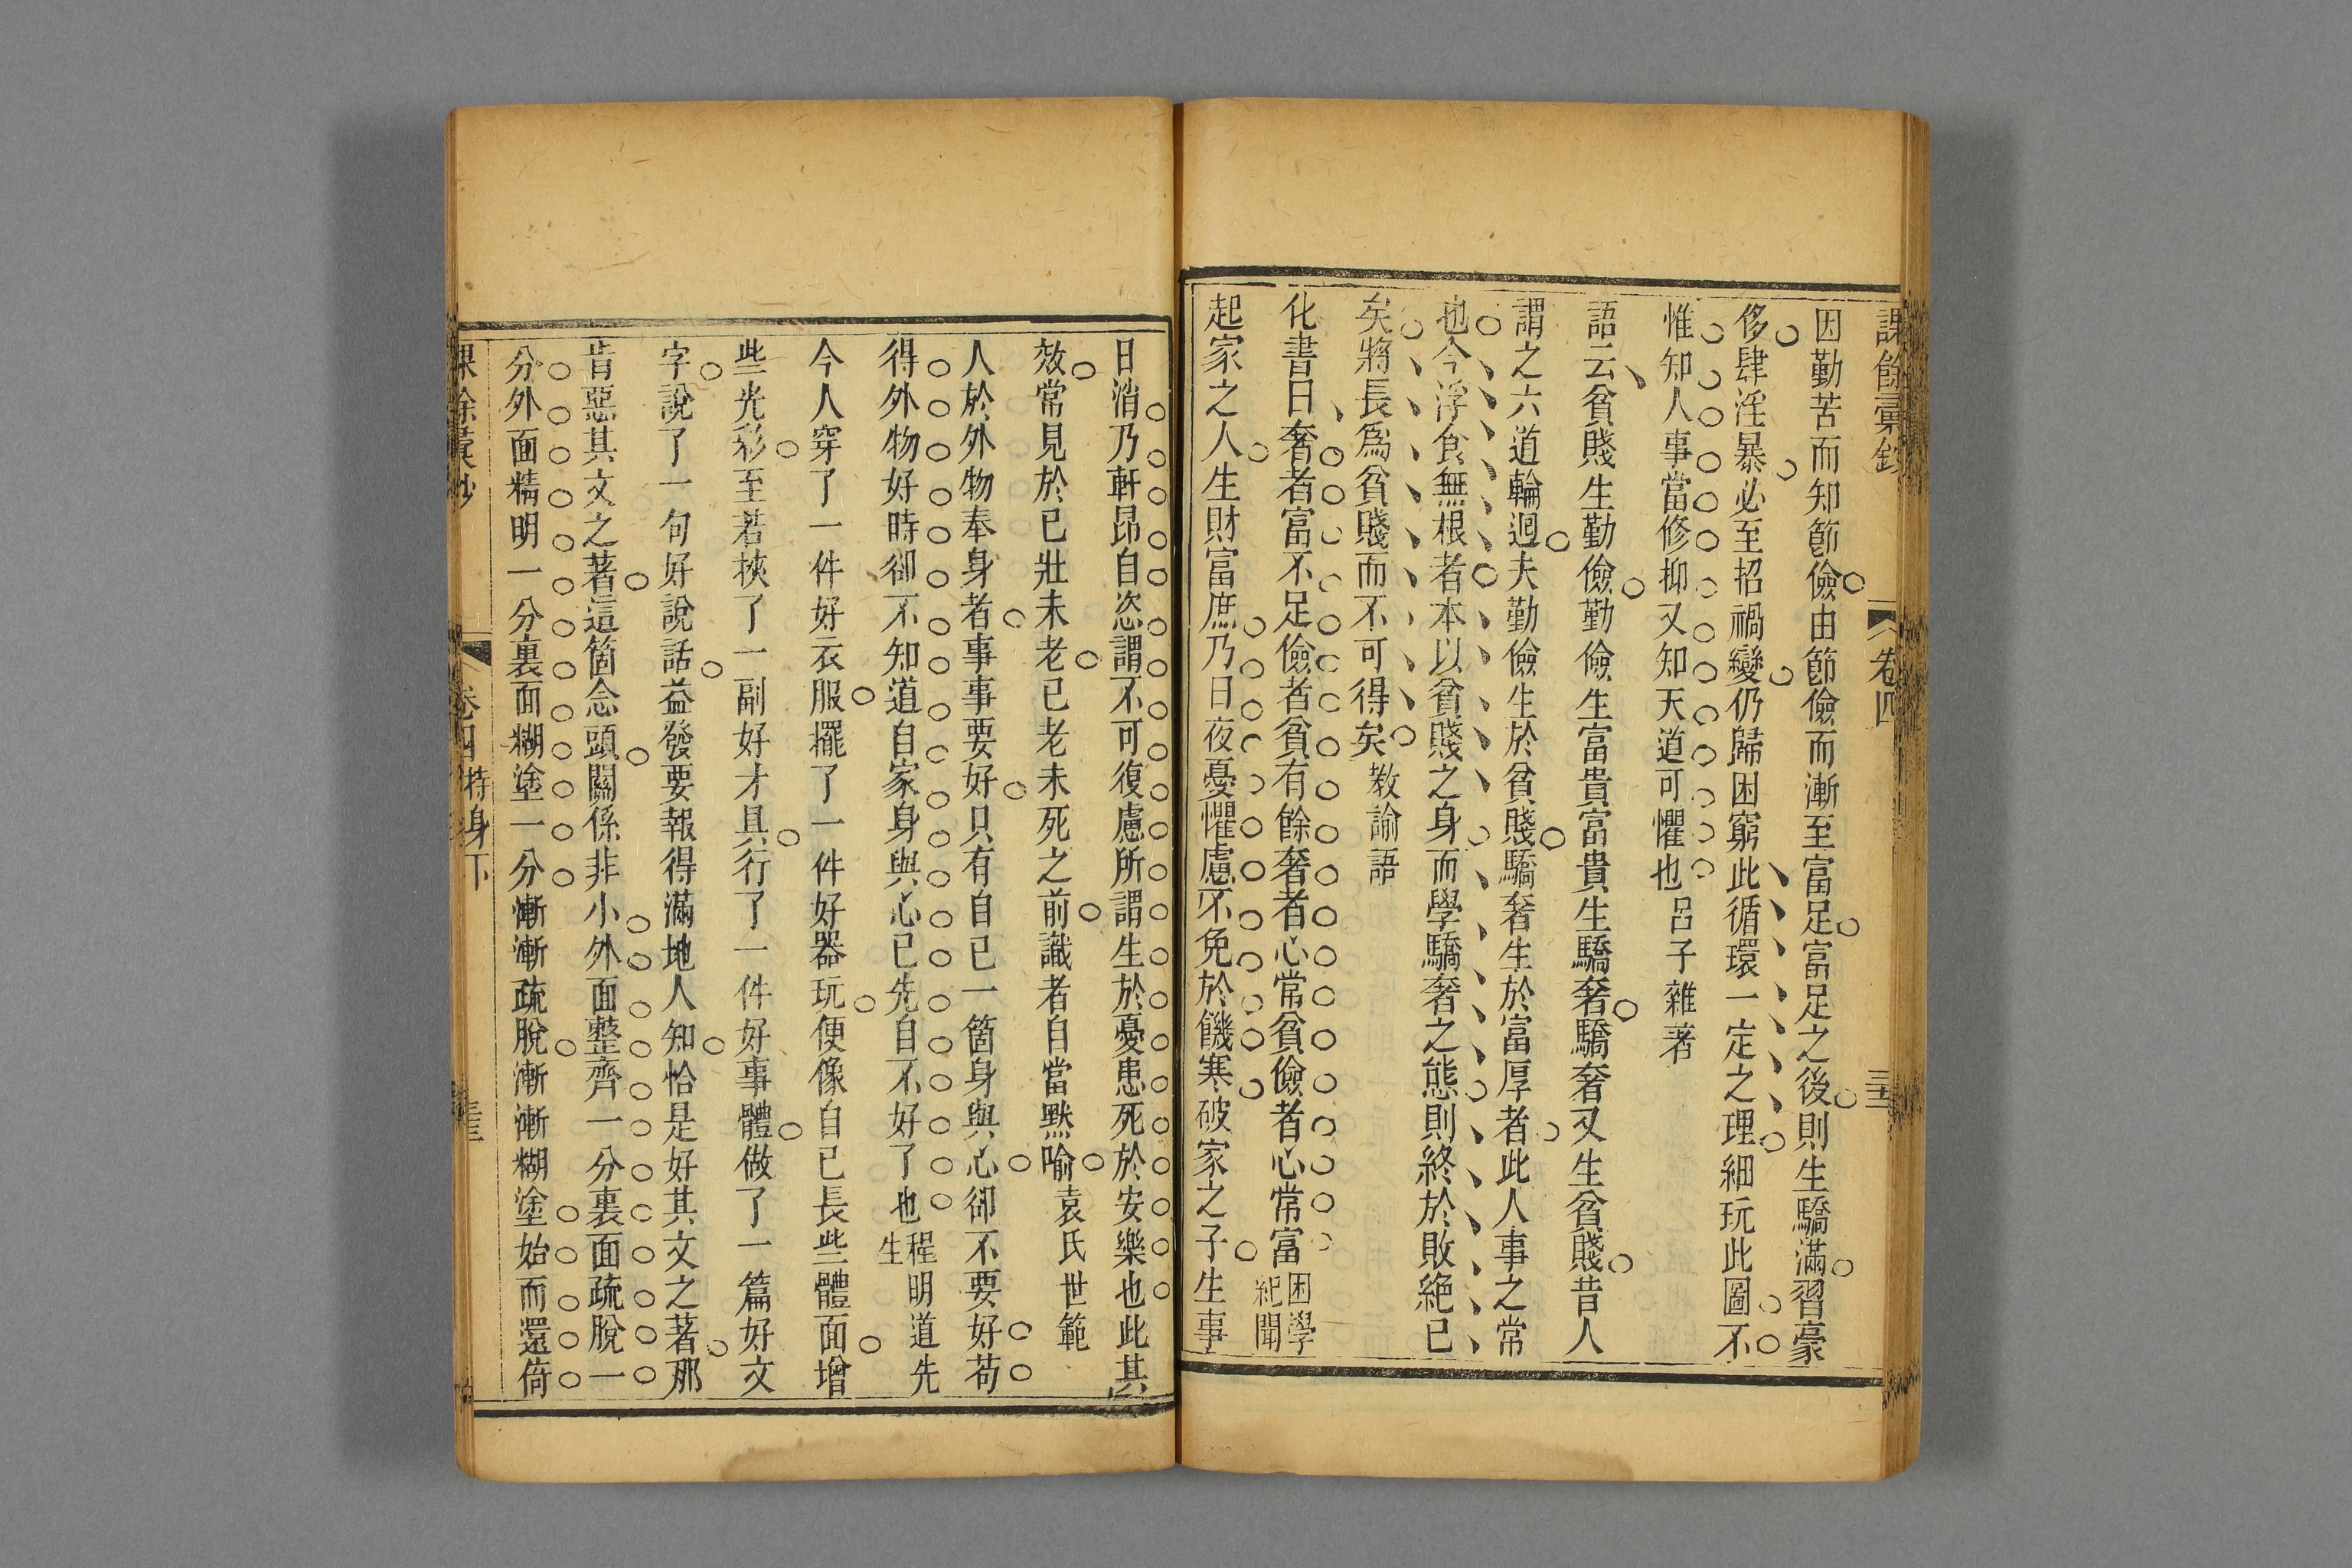 課餘彙鈔 卷四
因勤苦而知節儉由節儉而漸至富足富足之後則生驕滿習豪
侈肆淫暴必至招禍變仍歸困窮此循環一定之理細玩此圖不
惟知人事當修抑又知天道可懼也 呂子雜著
語云貧賤生勤儉勤儉生富貴富貴生驕奢驕奢又生貧賤昔人
謂之六道輪迴夫勤儉生於貧賤驕奢生於富厚者此人事之常
也今浮食無根者本以貧賤之身而學驕奢之態則終於敗絕已
矣將長爲貧賤而不可得矣 教諭語
化書曰奢者富不足儉者貧有餘奢者心常貧儉者心常富 困學紀聞
起家之人生財富庶乃日夜憂懼慮不免於饑寒破家之子生事
日消乃軒昂自恣謂不可復慮所謂生於憂患死於安樂也此其
效常見於已壯未老已老未死之前識者自當默喻 袁氏世範
人於外物奉身者事事要好只有自已一箇身與心卻不要好苟
得外物好時卻不知道自家身與心已先自不好了也 程明道先生
今人穿了一件好衣服擺了一件好器玩便像自已長些體面增
些光彩至若挾了一副好才具行了一件好事體做了一篇好文
字說了一句好說話益發要報得滿地人知恰是好其文之著那
肯惡其文之著這箇念頭關係非小外面整齊一分裏面疏脫一
分外面精明一分裏面糊塗一分漸漸疏脫漸漸糊塗始而還倚
卷四 持身下